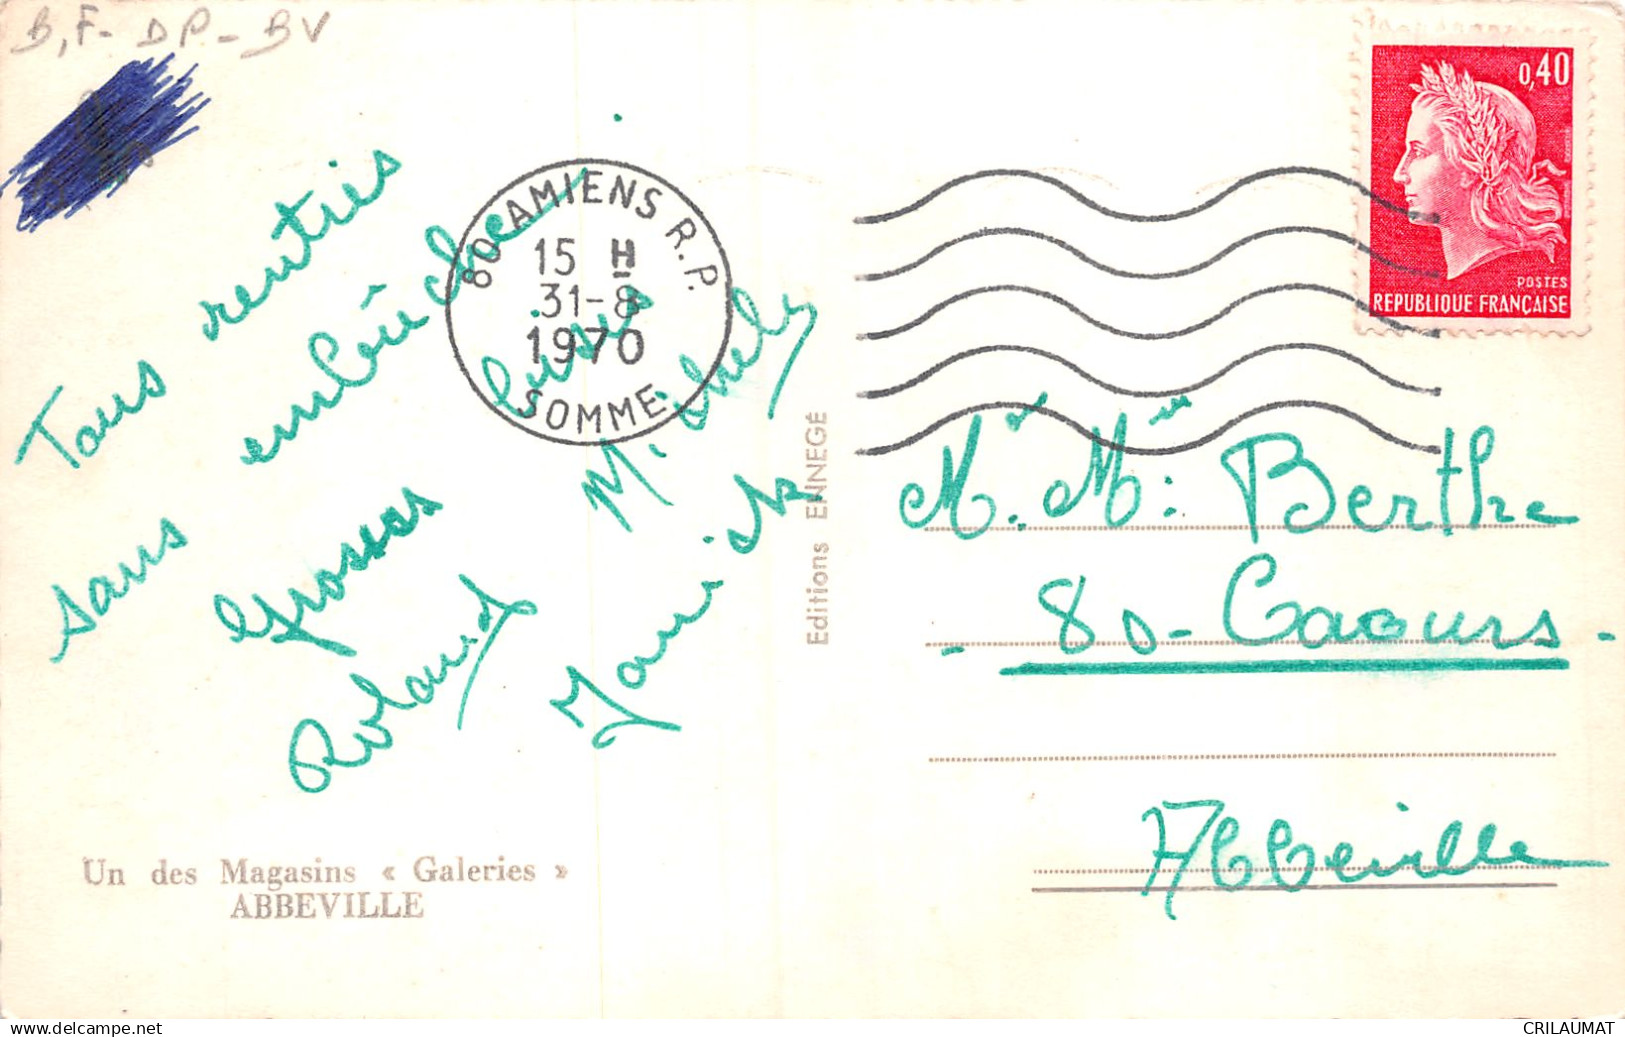 B,F- DP - BV
Tous rentrés
sans embûches
Grosses bises
Michele
Roland
Yannick
80 AMIENS R.P.
15 H
31-8
1970
SOMME
0,40
POSTES
REPUBLIQUE FRANÇAISE
Editions ENNEGÉ
M. Mlle: Berthe
- 80 - Caours -
Abbeville
Un des Magasins « Galeries »
ABBEVILLE
delcampe.net
CRILAUMAT